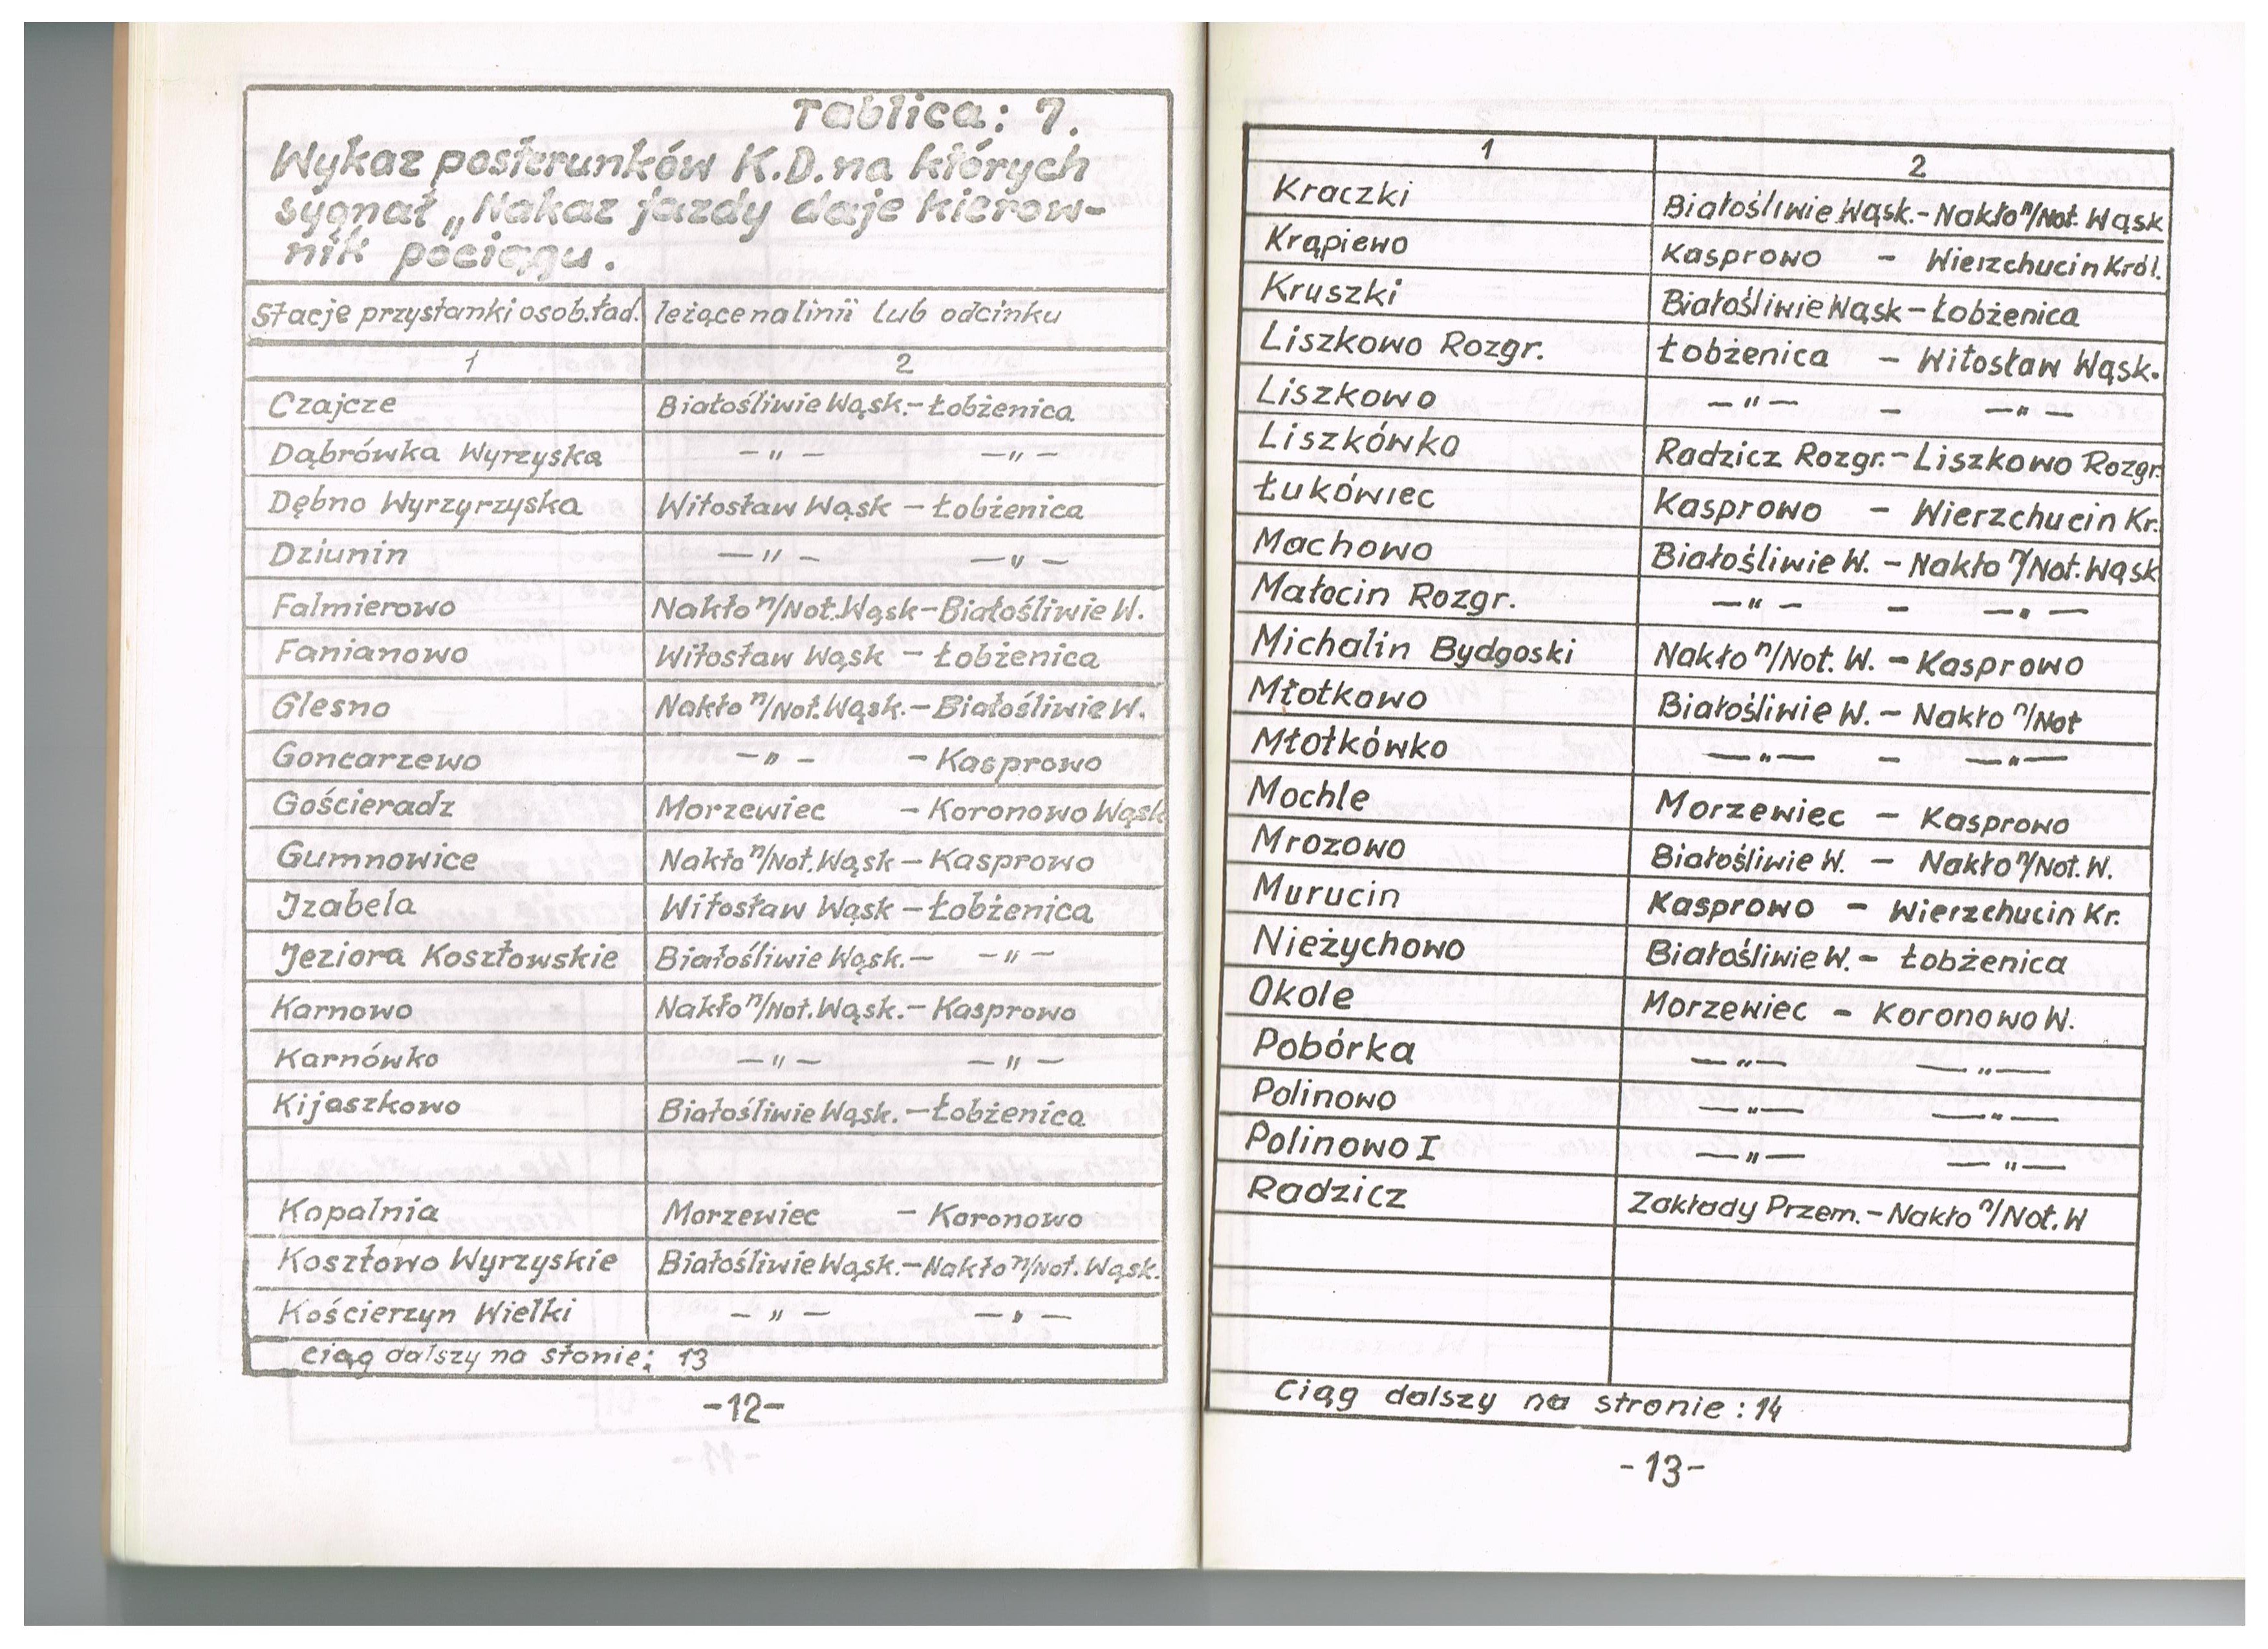 Tablica: 7.
Wykaz posterunków K.D. na których
sygnał „Nakaz jazdy daje kierow-
nik pociągu.
Stacje przystanki osob.ład. leżące na linii lub odcinku
1 2
Czajcze Białośliwie Wąsk.-Łobżenica
Dąbrówka Wyrzyska -"- -"-
Dębno Wyrzyrzyska Witosław Wąsk - Łobżenica
Dziunin -"- -"-
Falmierowo Nakło n/Not.Wąsk-Białośliwie W.
Fanianowo Witosław Wąsk - Łobżenica
Glesno Nakło n/Not.Wąsk.-Białośliwie W.
Goncarzewo -"- - Kasprowo
Gościeradz Morzewiec - Koronowo Wąsk
Gumnowice Nakło n/Not.Wąsk - Kasprowo
Izabela Witosław Wąsk - Łobżenica
Jeziora Kosztowskie Białośliwie Wąsk.- -"-
Karnowo Nakło n/Not.Wąsk.- Kasprowo
Karnówko -"- -"-
Kijaszkowo Białośliwie Wąsk. -Łobżenica
Kopalnia Morzewiec - Koronowo
Kosztowo Wyrzyskie Białośliwie Wąsk.-Nakło n/Not. Wąsk.
Kościerzyn Wielki -"- -"-
ciąg dalszy na stonie: 13
-12-
1 2
Kraczki Białośliwie Wąsk.- Nakło n/Not. Wąsk
Krąpiewo Kasprowo - Wierzchucin Król.
Kruszki Białośliwie Wąsk - Łobżenica
Liszkowo Rozgr. Łobżenica - Witosław Wąsk.
Liszkowo -"- - -"-
Liszkówko Radzicz Rozgr.- Liszkowo Rozgr.
Łukówiec Kasprowo - Wierzchucin Kr.
Machowo Białośliwie W. - Nakło n/Not. Wąsk
Małocin Rozgr. -"- - -"-
Michalin Bydgoski Nakło n/Not. W. - Kasprowo
Młotkowo Białośliwie W. - Nakło n/Not
Młotkówko -"- - -"-
Mochle Morzewiec - Kasprowo
Mrozowo Białośliwie W. - Nakło n/Not. W.
Murucin Kasprowo - Wierzchucin Kr.
Nieżychowo Białośliwie W. - Łobżenica
Okole Morzewiec - Koronowo W.
Pobórka -"- -"-
Polinowo -"- -"-
Polinowo I -"- -"-
Radzicz Zakłady Przem. - Nakło n/Not. W
Ciąg dalszy na stronie : 14
-13-